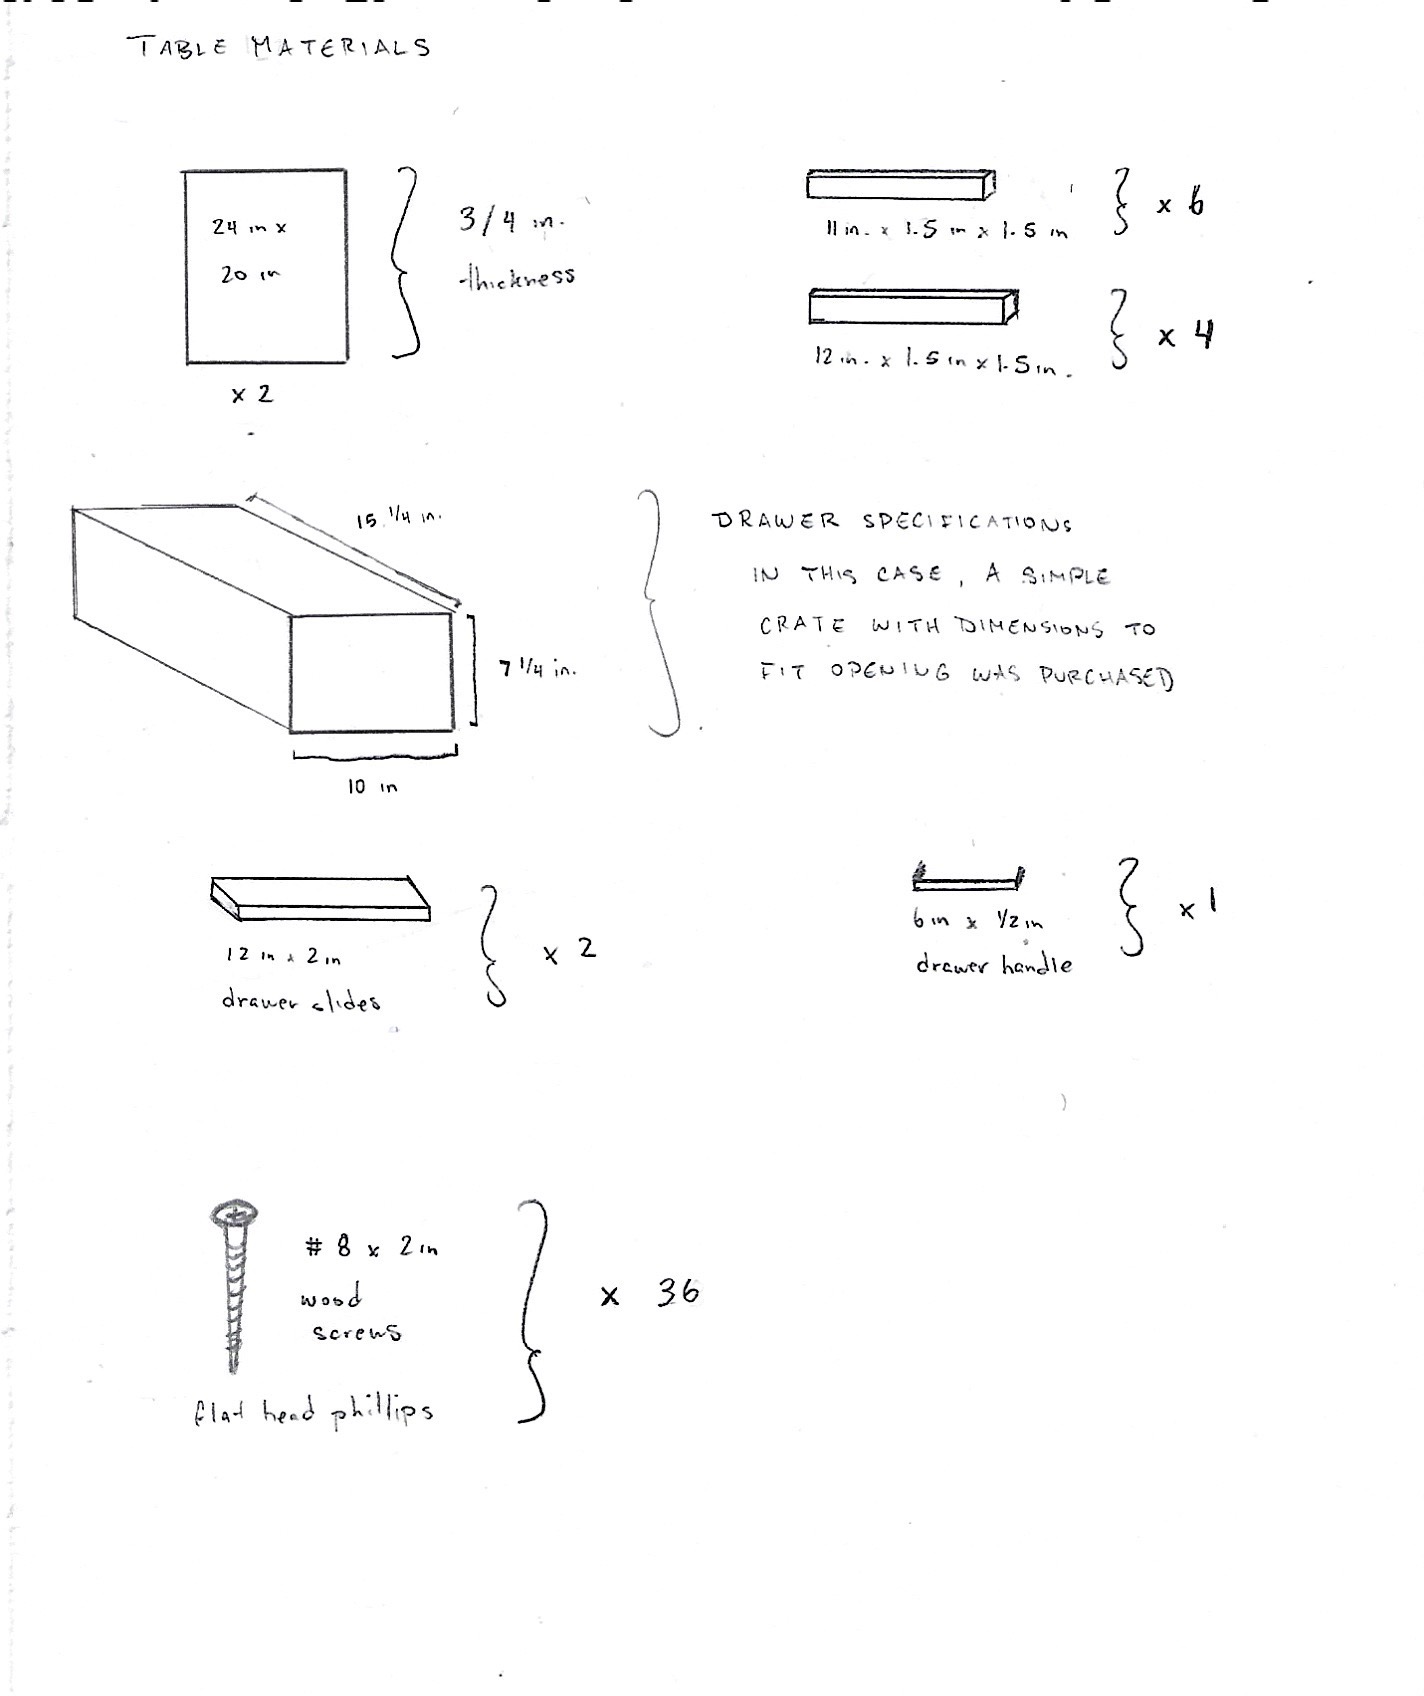 TABLE MATERIALS
24 in x
20 in
x 2
3/4 in.
thickness
11 in. x 1.5 in x 1.5 in
x 6
12 in. x 1.5 in x 1.5 in.
x 4
15 1/4 in.
7 1/4 in.
10 in
DRAWER SPECIFICATIONS
IN THIS CASE, A SIMPLE
CRATE WITH DIMENSIONS TO
FIT OPENING WAS PURCHASED
12 in x 2 in
drawer slides
x 2
6 in x 1/2 in
drawer handle
x 1
# 8 x 2 in
wood
screws
flat head phillips
x 36